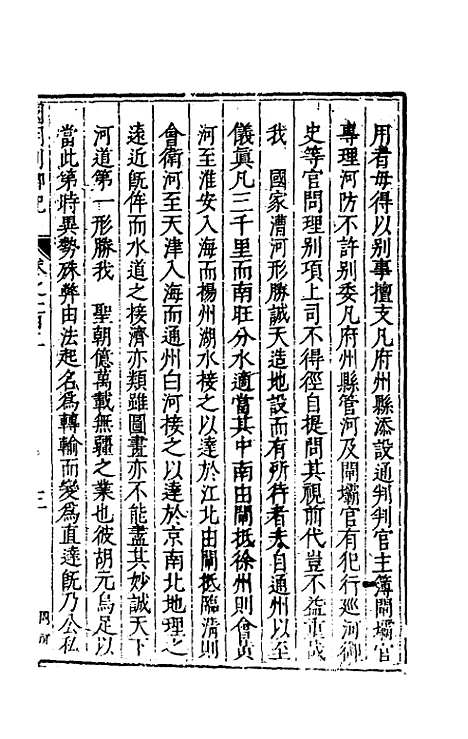 用者毋得以别事擅支凡府州縣添設通判判官主簿閘壩官
專理河防不許别委凡府州縣管河及閘壩官有犯行廵河御
史等官問理别項上司不得徑自提問其視前代豈不益重哉
我　國家漕河形勝誠天造地設而有所待者夫自通州以至
儀眞凡三千里而南旺分水適當其中南由閘抵徐州則會黄
河至淮安入海而楊州湖水接之以達於江北由閘抵臨清則
會衛河至天津入海而通州白河接之以達於京南北地理之
遠近旣侔而水道之接濟亦類雖圖畫亦不能盡其妙誠天下
河道第一形勝我　聖朝億萬載無疆之業也彼胡元烏足以
當此第時異勢殊弊由法起名爲轉輸而變爲直達旣乃公私